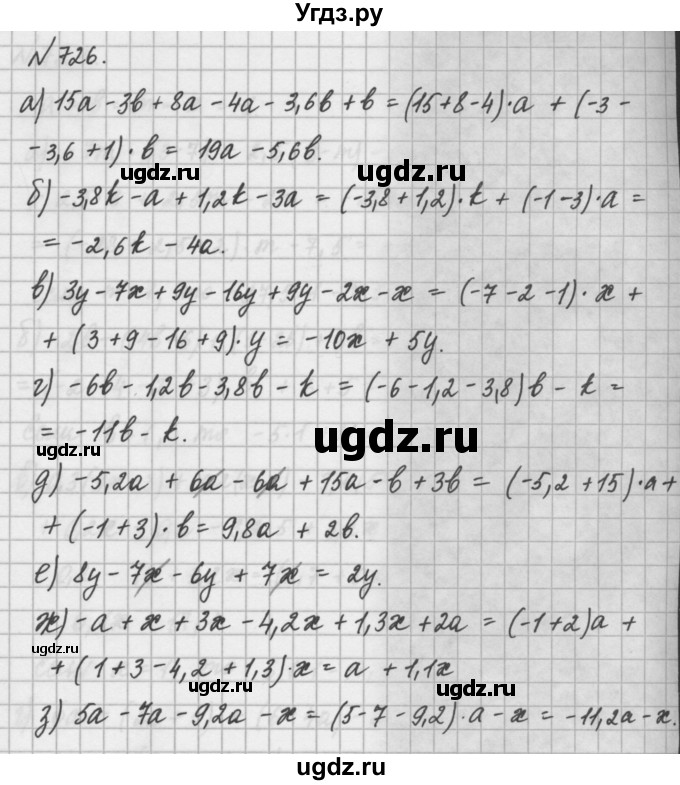 Угдз.ру
№ 726.
а) 15a - 3в + 8a - 4a - 3,6в + в = (15+8-4)·a + (-3 -
- 3,6 + 1)·в = 19a - 5,6в.
ugdz.ru ugdz.ru
б) -3,8k - a + 1,2k - 3a = (-3,8 + 1,2)·k + (-1-3)·a =
= -2,6k - 4a.
в) 3y - 7x + 9y - 16y + 9y - 2x - x = (-7 - 2 - 1)·x +
+ (3 + 9 - 16 + 9)·y = -10x + 5y.
г) -6в - 1,2в - 3,8в - k = (-6 - 1,2 - 3,8)в - k =
= -11в - k.
ugdz.ru ugdz.ru
д) -5,2a + 6a - 6a + 15a - в + 3в = (-5,2 + 15)·a +
+ (-1 + 3)·в = 9,8a + 2в.
е) 8y - 7x - 6y + 7x = 2y.
ж) -a + x + 3x - 4,2x + 1,3x + 2a = (-1 + 2)a +
ugdz.ru
+ (1 + 3 - 4,2 + 1,3)·x = a + 1,1x
ugdz.ru ugdz.ru
з) 5a - 7a - 9,2a - x = (5 - 7 - 9,2)·a - x = -11,2a - x.
ugdz.ru